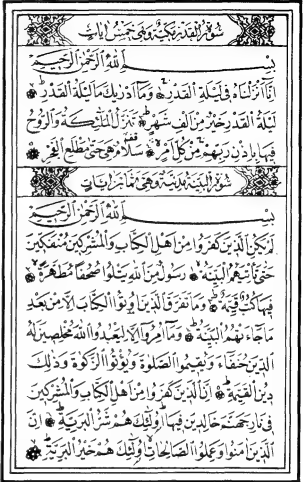 سورة القدر مكية وهي خمس ايات
بسم الله الرحمن الرحيم
انا انزلناه في ليلة القدر وما ادريك ما ليلة القدر
ليلة القدر خير من الف شهر تنزل الملئكة والروح
فيها باذن ربهم من كل امر سلام هي حتى مطلع الفجر
سورة البينة مدنية وهي ثمان ايات
بسم الله الرحمن الرحيم
لم يكن الذين كفروا من اهل الكتاب والمشركين منفكين
حتى تاتيهم البينة رسول من الله يتلوا صحفا مطهرة
فيها كتب قيمة وما تفرق الذين اوتوا الكتاب الا من بعد
ما جاءتهم البينة وما امروا الا ليعبدوا الله مخلصين له
الدين حنفاء ويقيموا الصلوة ويؤتوا الزكوة وذلك
دين القيمة ان الذين كفروا من اهل الكتاب والمشركين
في نار جهنم خالدين فيها اولئك هم شر البرية ان
الذين امنوا وعملوا الصالحات اولئك هم خير البرية